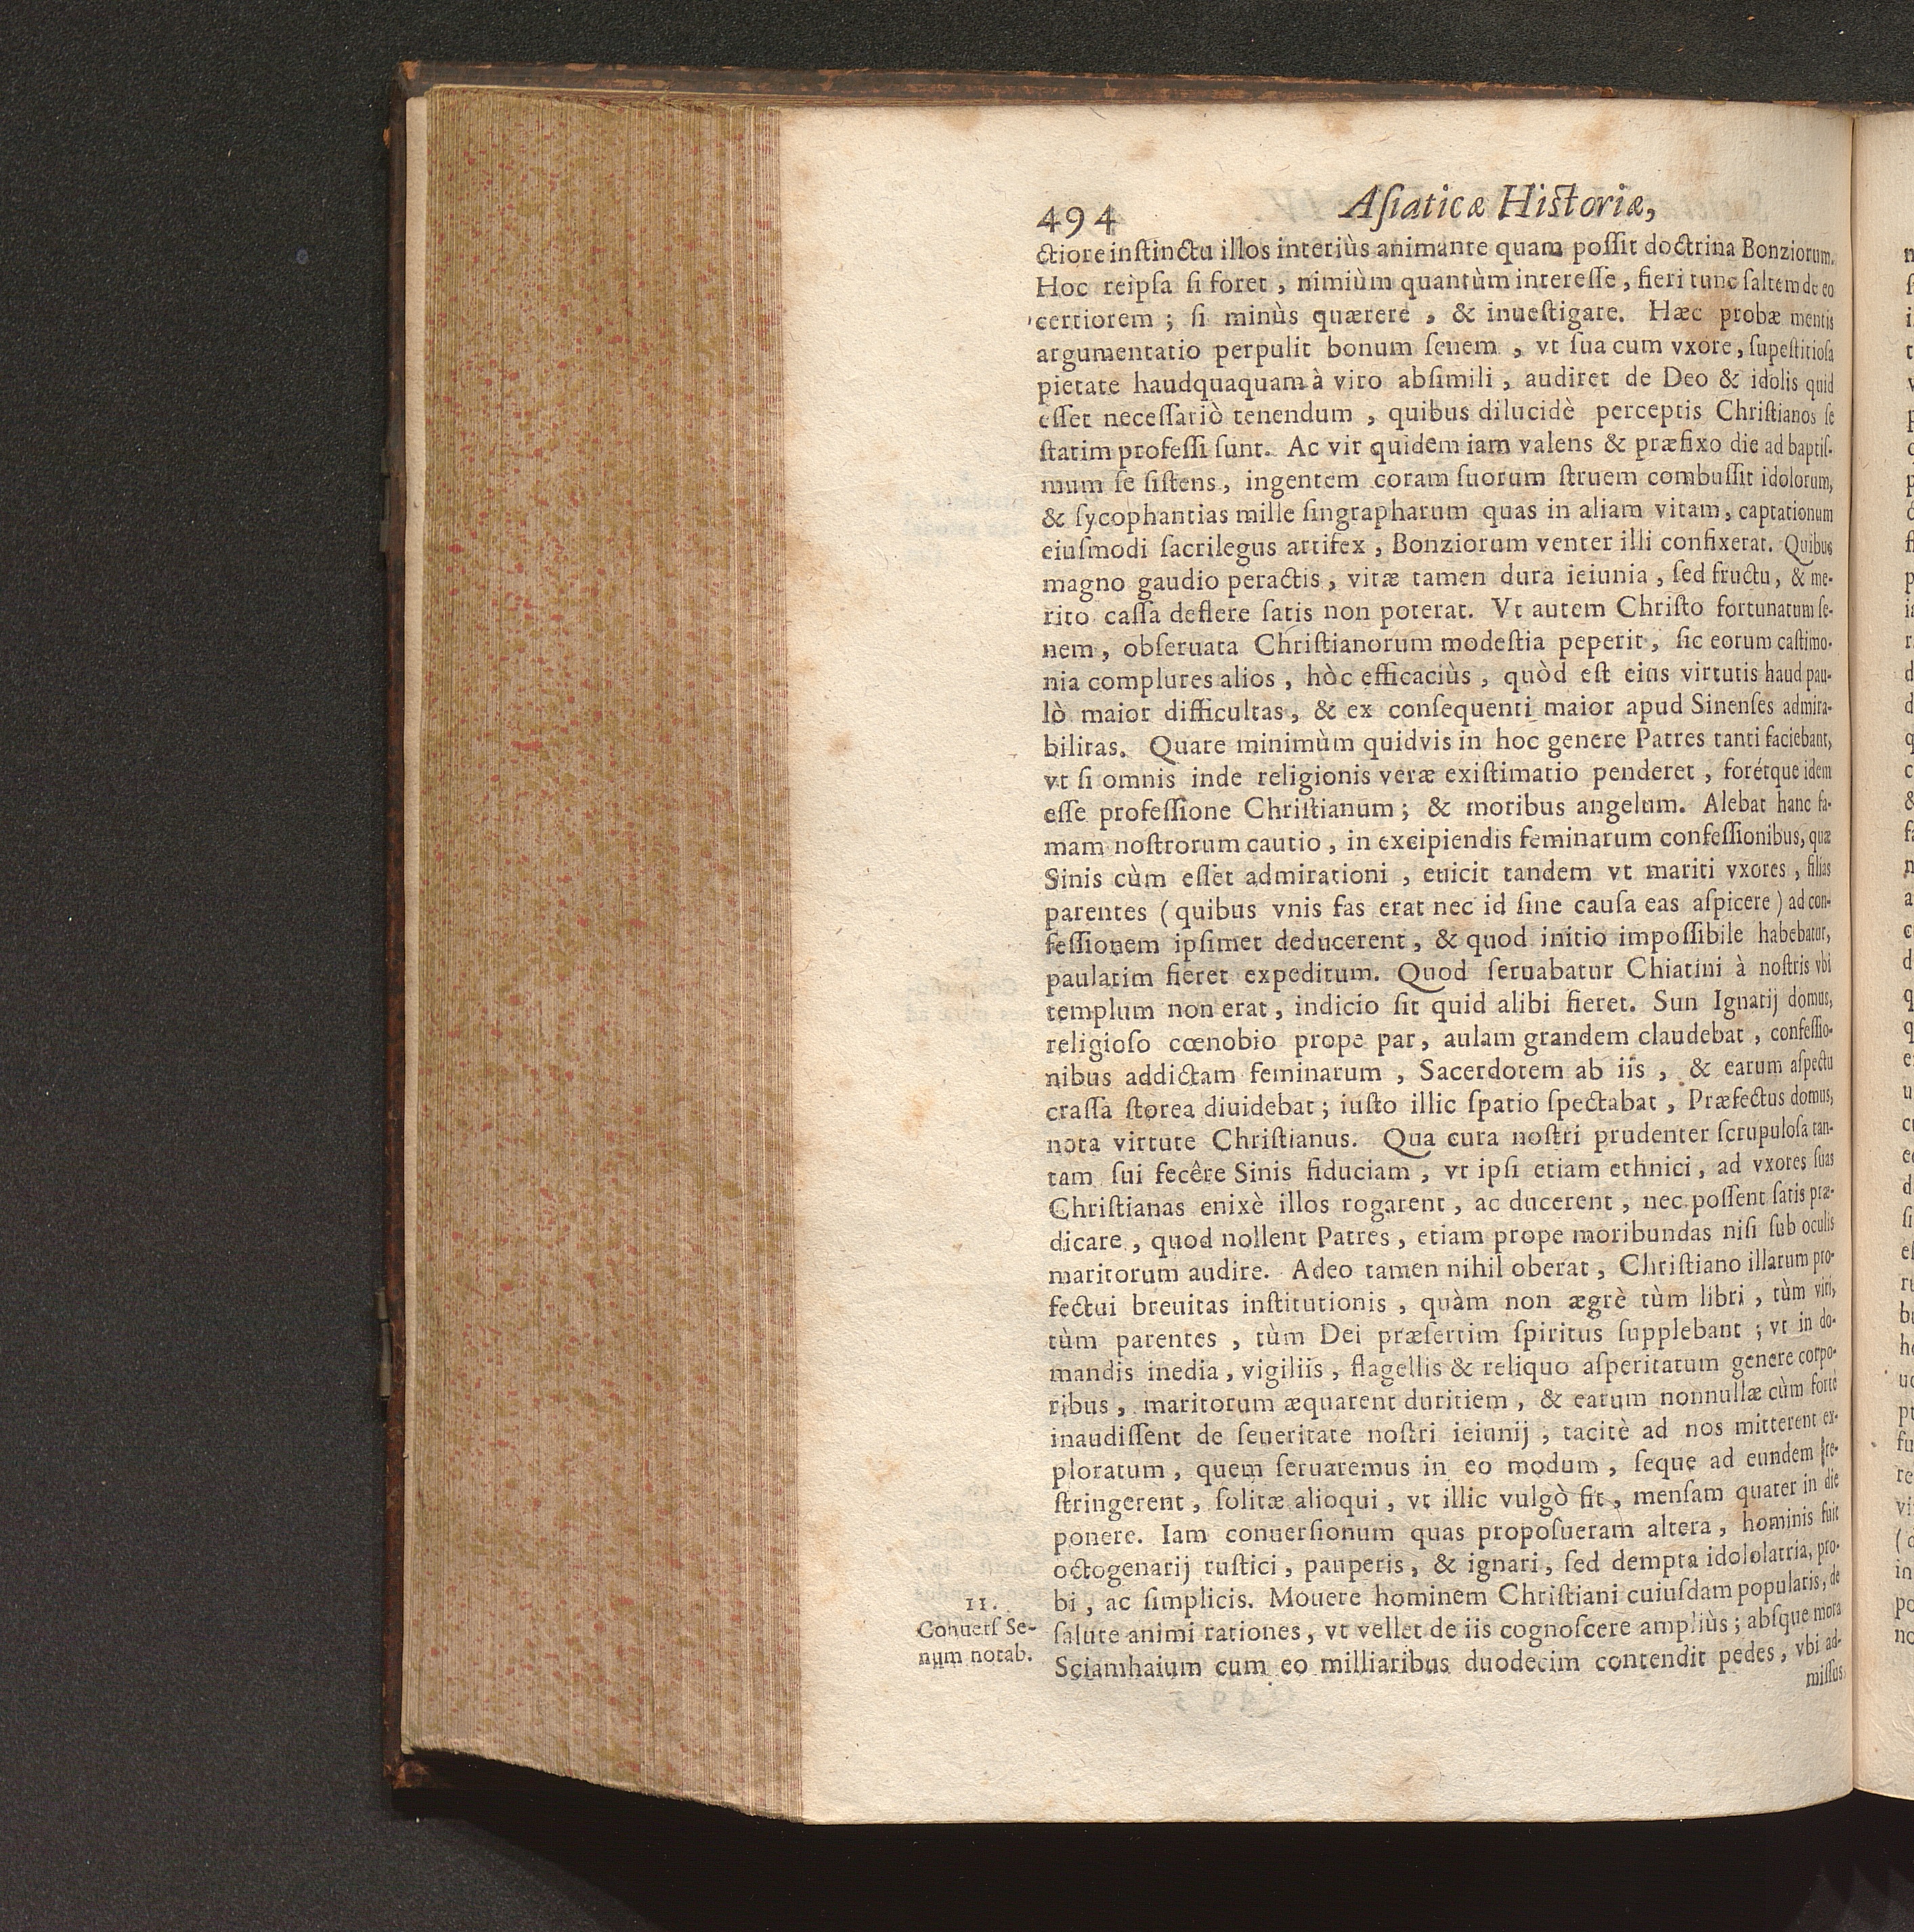 494
Aſiaticæ Hiſtoriæ,
ctiore inſtinctu illos interiùs animante quam poſſit doctrina Bonziorum.
Hoc reipſa ſi foret, nimiùm quantùm intereſſe, fieri tunc ſaltem de eo
certiorem; ſi minùs quærere, & inueſtigare. Hæc probæ mentis
argumentatio perpulit bonum ſenem, vt ſua cum vxore, ſupeſtitioſa
pietate haudquaquam à viro abſimili, audiret de Deo & idolis quid
eſſet neceſſariò tenendum, quibus dilucidè perceptis Chriſtianos ſe
ſtatim profeſſi ſunt. Ac vir quidem iam valens & præfixo die ad baptiſ-
mum ſe ſiſtens, ingentem coram ſuorum ſtruem combuſſit idolorum,
& ſycophantias mille ſingrapharum quas in aliam vitam, captationum
eiuſmodi ſacrilegus artifex, Bonziorum venter illi confixerat. Quibus
magno gaudio peractis, vitæ tamen dura ieiunia, ſed fructu, & me-
rito caſſa deflere ſatis non poterat. Vt autem Chriſto fortunatum ſe-
nem, obſeruata Chriſtianorum modeſtia peperit, ſic eorum caſtimo-
nia complures alios, hòc efficaciùs, quòd eſt eius virtutis haud pau-
lò maior difficultas, & ex conſequenti maior apud Sinenſes admira-
bilitas. Quare minimùm quidvis in hoc genere Patres tanti faciebant,
vt ſi omnis inde religionis veræ exiſtimatio penderet, forétque idem
eſſe profeſſione Chriſtianum; & moribus angelum. Alebat hanc fa-
mam noſtrorum cautio, in excipiendis feminarum confeſſionibus, quæ
Sinis cùm eſſet admirationi, euicit tandem vt mariti vxores, filias
parentes (quibus vnis fas erat nec id ſine cauſa eas aſpicere) ad con-
feſſionem ipſimet deducerent, & quod initio impoſſibile habebatur,
paulatim fieret expeditum. Quod ſeruabatur Chiatini à noſtris vbi
templum non erat, indicio ſit quid alibi fieret. Sun Ignatij domus,
religioſo cœnobio prope par, aulam grandem claudebat, confeſſio-
nibus addictam feminarum, Sacerdotem ab iis, & earum aſpectu
craſſa ſtorea diuidebat; iuſto illic ſpatio ſpectabat, Præfectus domus,
nota virtute Chriſtianus. Qua cura noſtri prudenter ſcrupuloſa tan-
tam ſui fecêre Sinis fiduciam, vt ipſi etiam ethnici, ad vxores ſuas
Chriſtianas enixè illos rogarent, ac ducerent, nec poſſent ſatis præ-
dicare, quod nollent Patres, etiam prope moribundas niſi ſub oculis
maritorum audire. Adeo tamen nihil oberat, Chriſtiano illarum pro-
fectui breuitas inſtitutionis, quàm non ægrè tùm libri, tùm viri,
tùm parentes, tùm Dei præſertim ſpiritus ſupplebant; vt in do-
mandis inedia, vigiliis, flagellis & reliquo aſperitatum genere corpo-
ribus, maritorum æquarent duritiem, & earum nonnullæ cùm forte
inaudiſſent de ſeueritate noſtri ieiunij, tacitè ad nos mitterent ex-
ploratum, quem ſeruaremus in eo modum, ſeque ad eundem re-
ſtringerent, ſolitæ alioqui, vt illic vulgò fit, menſam quater in die
ponere. Iam conuerſionum quas propoſueram altera, hominis fuit
octogenarij ruſtici, pauperis, & ignari, ſed dempta idololatria, pro-
bi, ac ſimplicis. Mouere hominem Chriſtiani cuiuſdam popularis, de
ſalute animi rationes, vt vellet de iis cognoſcere ampliùs; abſque mora
Sciamhaium cum eo milliaribus duodecim contendit pedes, vbi ad-
miſſus
11.
Conuerſ Se-
num notab.